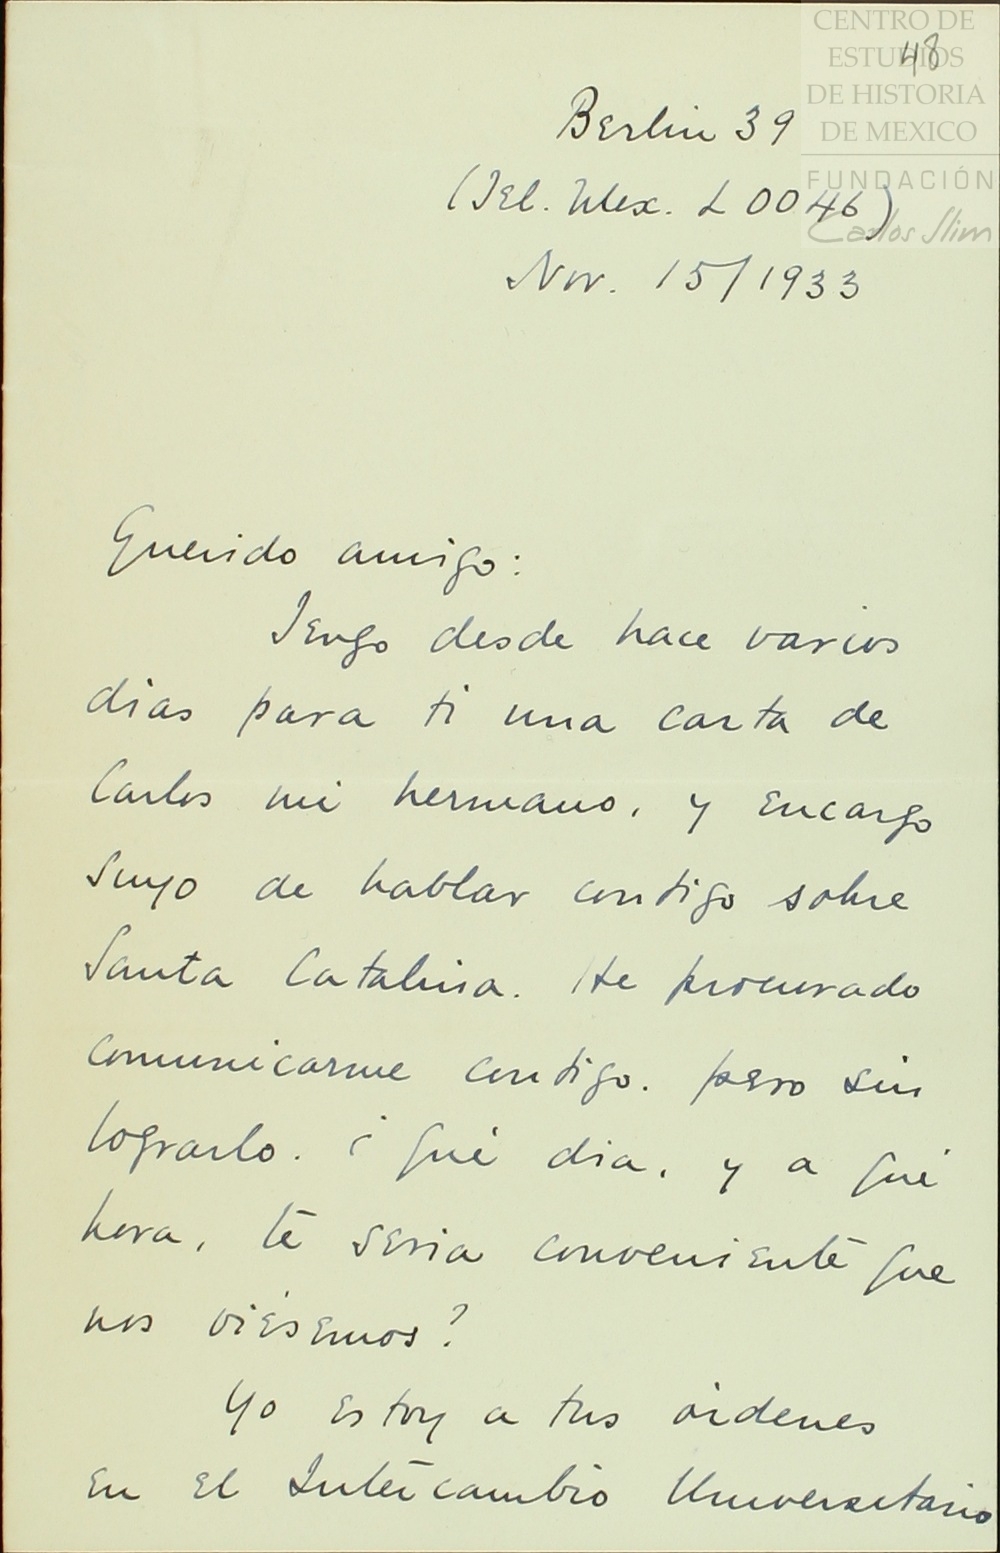 CENTRO DE
ESTUDIOS
DE HISTORIA
DE MEXICO
FUNDACIÓN
Carlos Slim
48
Berlin 39
(Tel. Mex. L 00 46)
Nov. 15/1933
Querido amigo:
Tengo desde hace varios
dias para ti una carta de
Carlos mi hermano, y encargo
suyo de hablar contigo sobre
Santa Catalina. He procurado
comunicarme contigo. pero sin
lograrlo. ¿Qué dia, y a qué
hora, te seria conveniente que
nos viésemos?
Yo estoy a tus órdenes
en el Intercambio Universitario